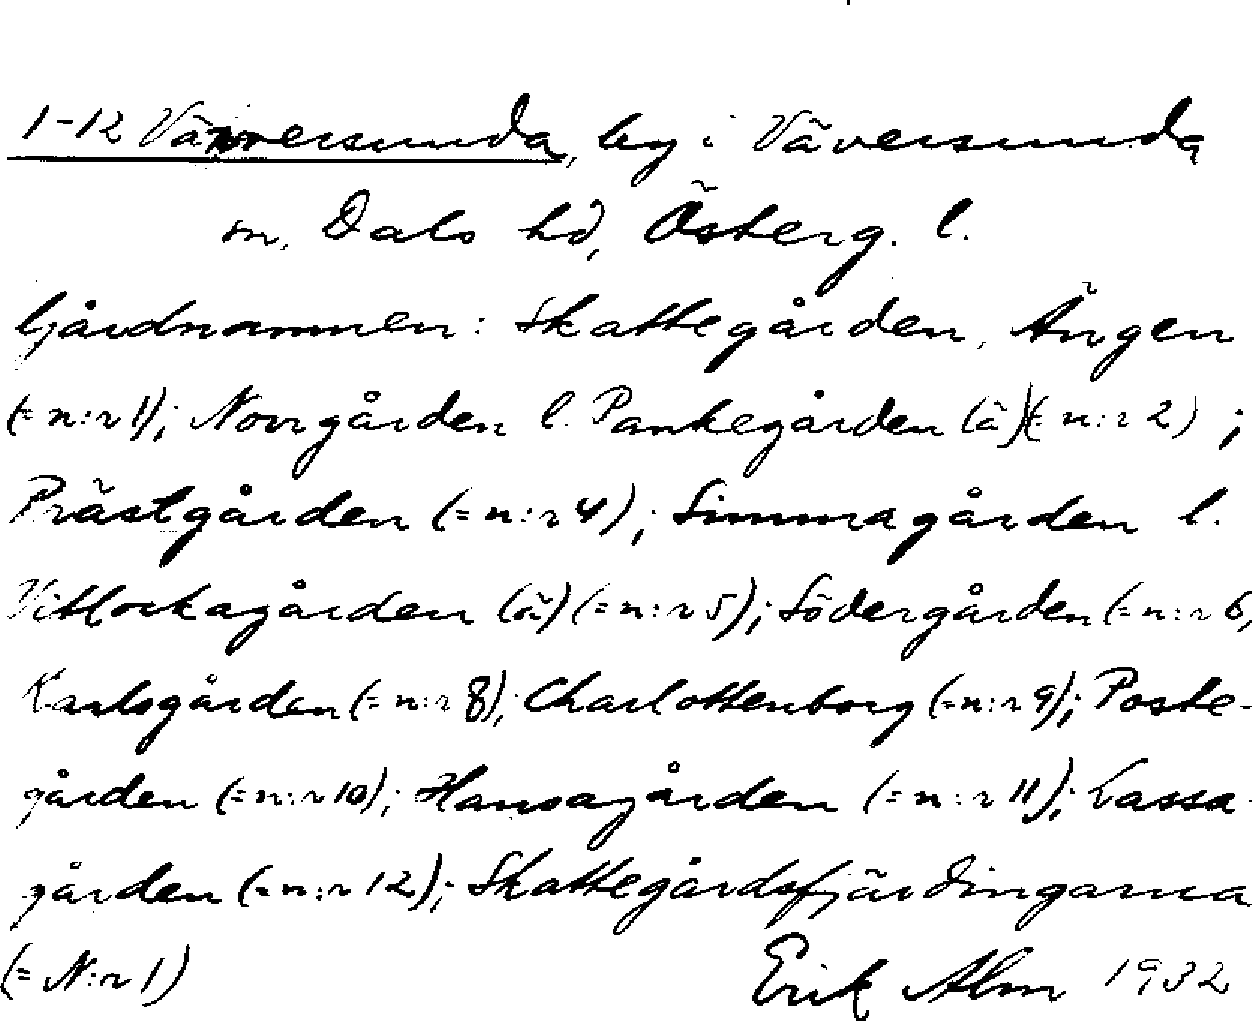 1-12 Väversunda, by i Väversunda
sn, Dals hd, Österg. l.
Gårdnamnen: Skattegården, Ängen
(= n:r 1); Norrgården l. Pankegården (ä) (= n:r 2);
Prästgården (= n:r 4); Simmagården l.
Vitlockagården (ä) (= n:r 5); Södergården (= n:r 6,
Karlsgården (= n:r 8); Charlottenborg (= n:r 9); Poste-
gården (= n:r 10); Hansagården (= n:r 11); Lassa-
gården (= n:r 12); Skattegårdsfjärdingarna
(= N:r 1)
Erik Alm 1932